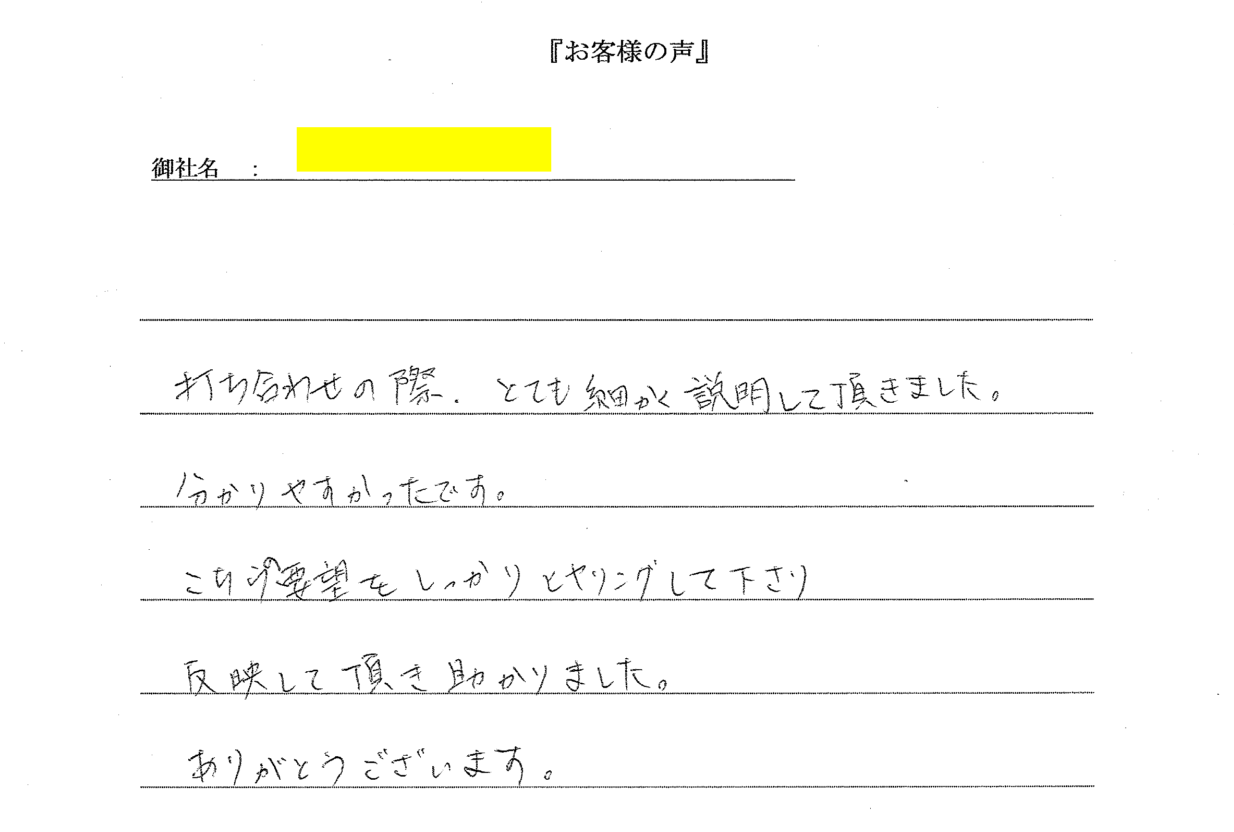 『お客様の声』
御社名 :
打ち合わせの際、とても細かく説明して頂きました。
分かりやすかったです。
こちらの要望をしっかりとヤリングして下さり
反映して頂き助かりました。
ありがとうございます。